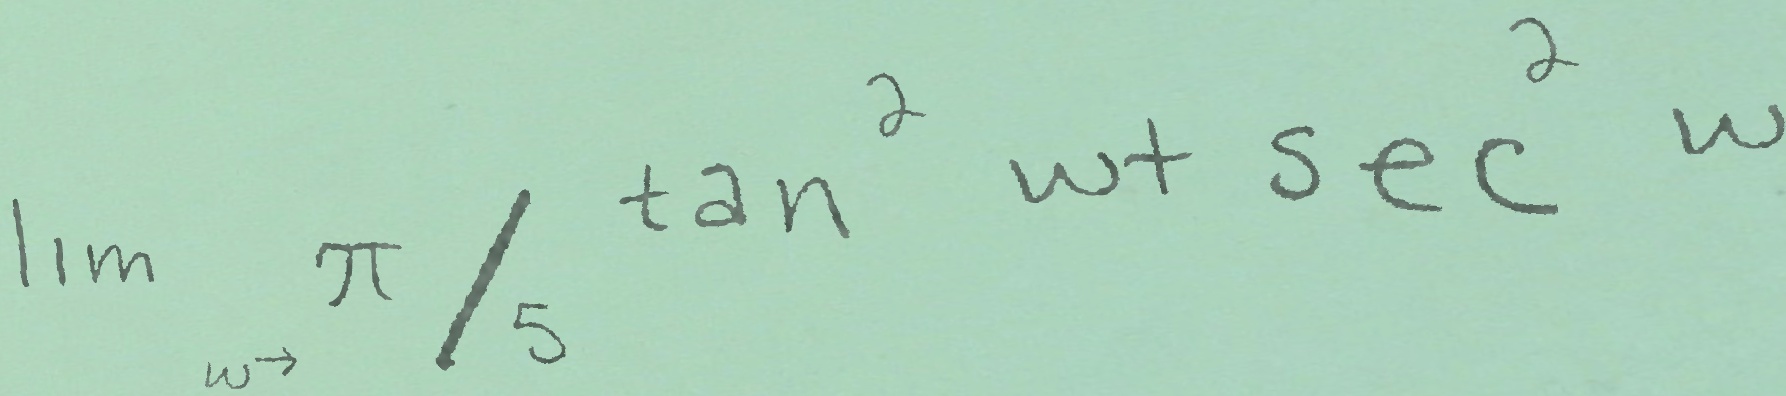 lim w→ π/5 tan² w+ sec² w